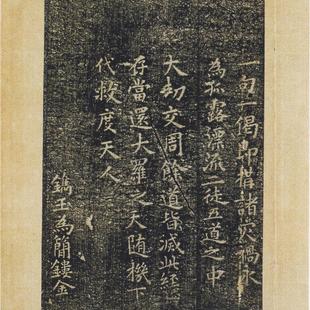 一句一偈即措諸災禍永
為孤露漂流三徒五道之中
大劫交周餘道皆滅此經
存當還大羅之天随機下
代救度天人
鐫玉為簡鏤金